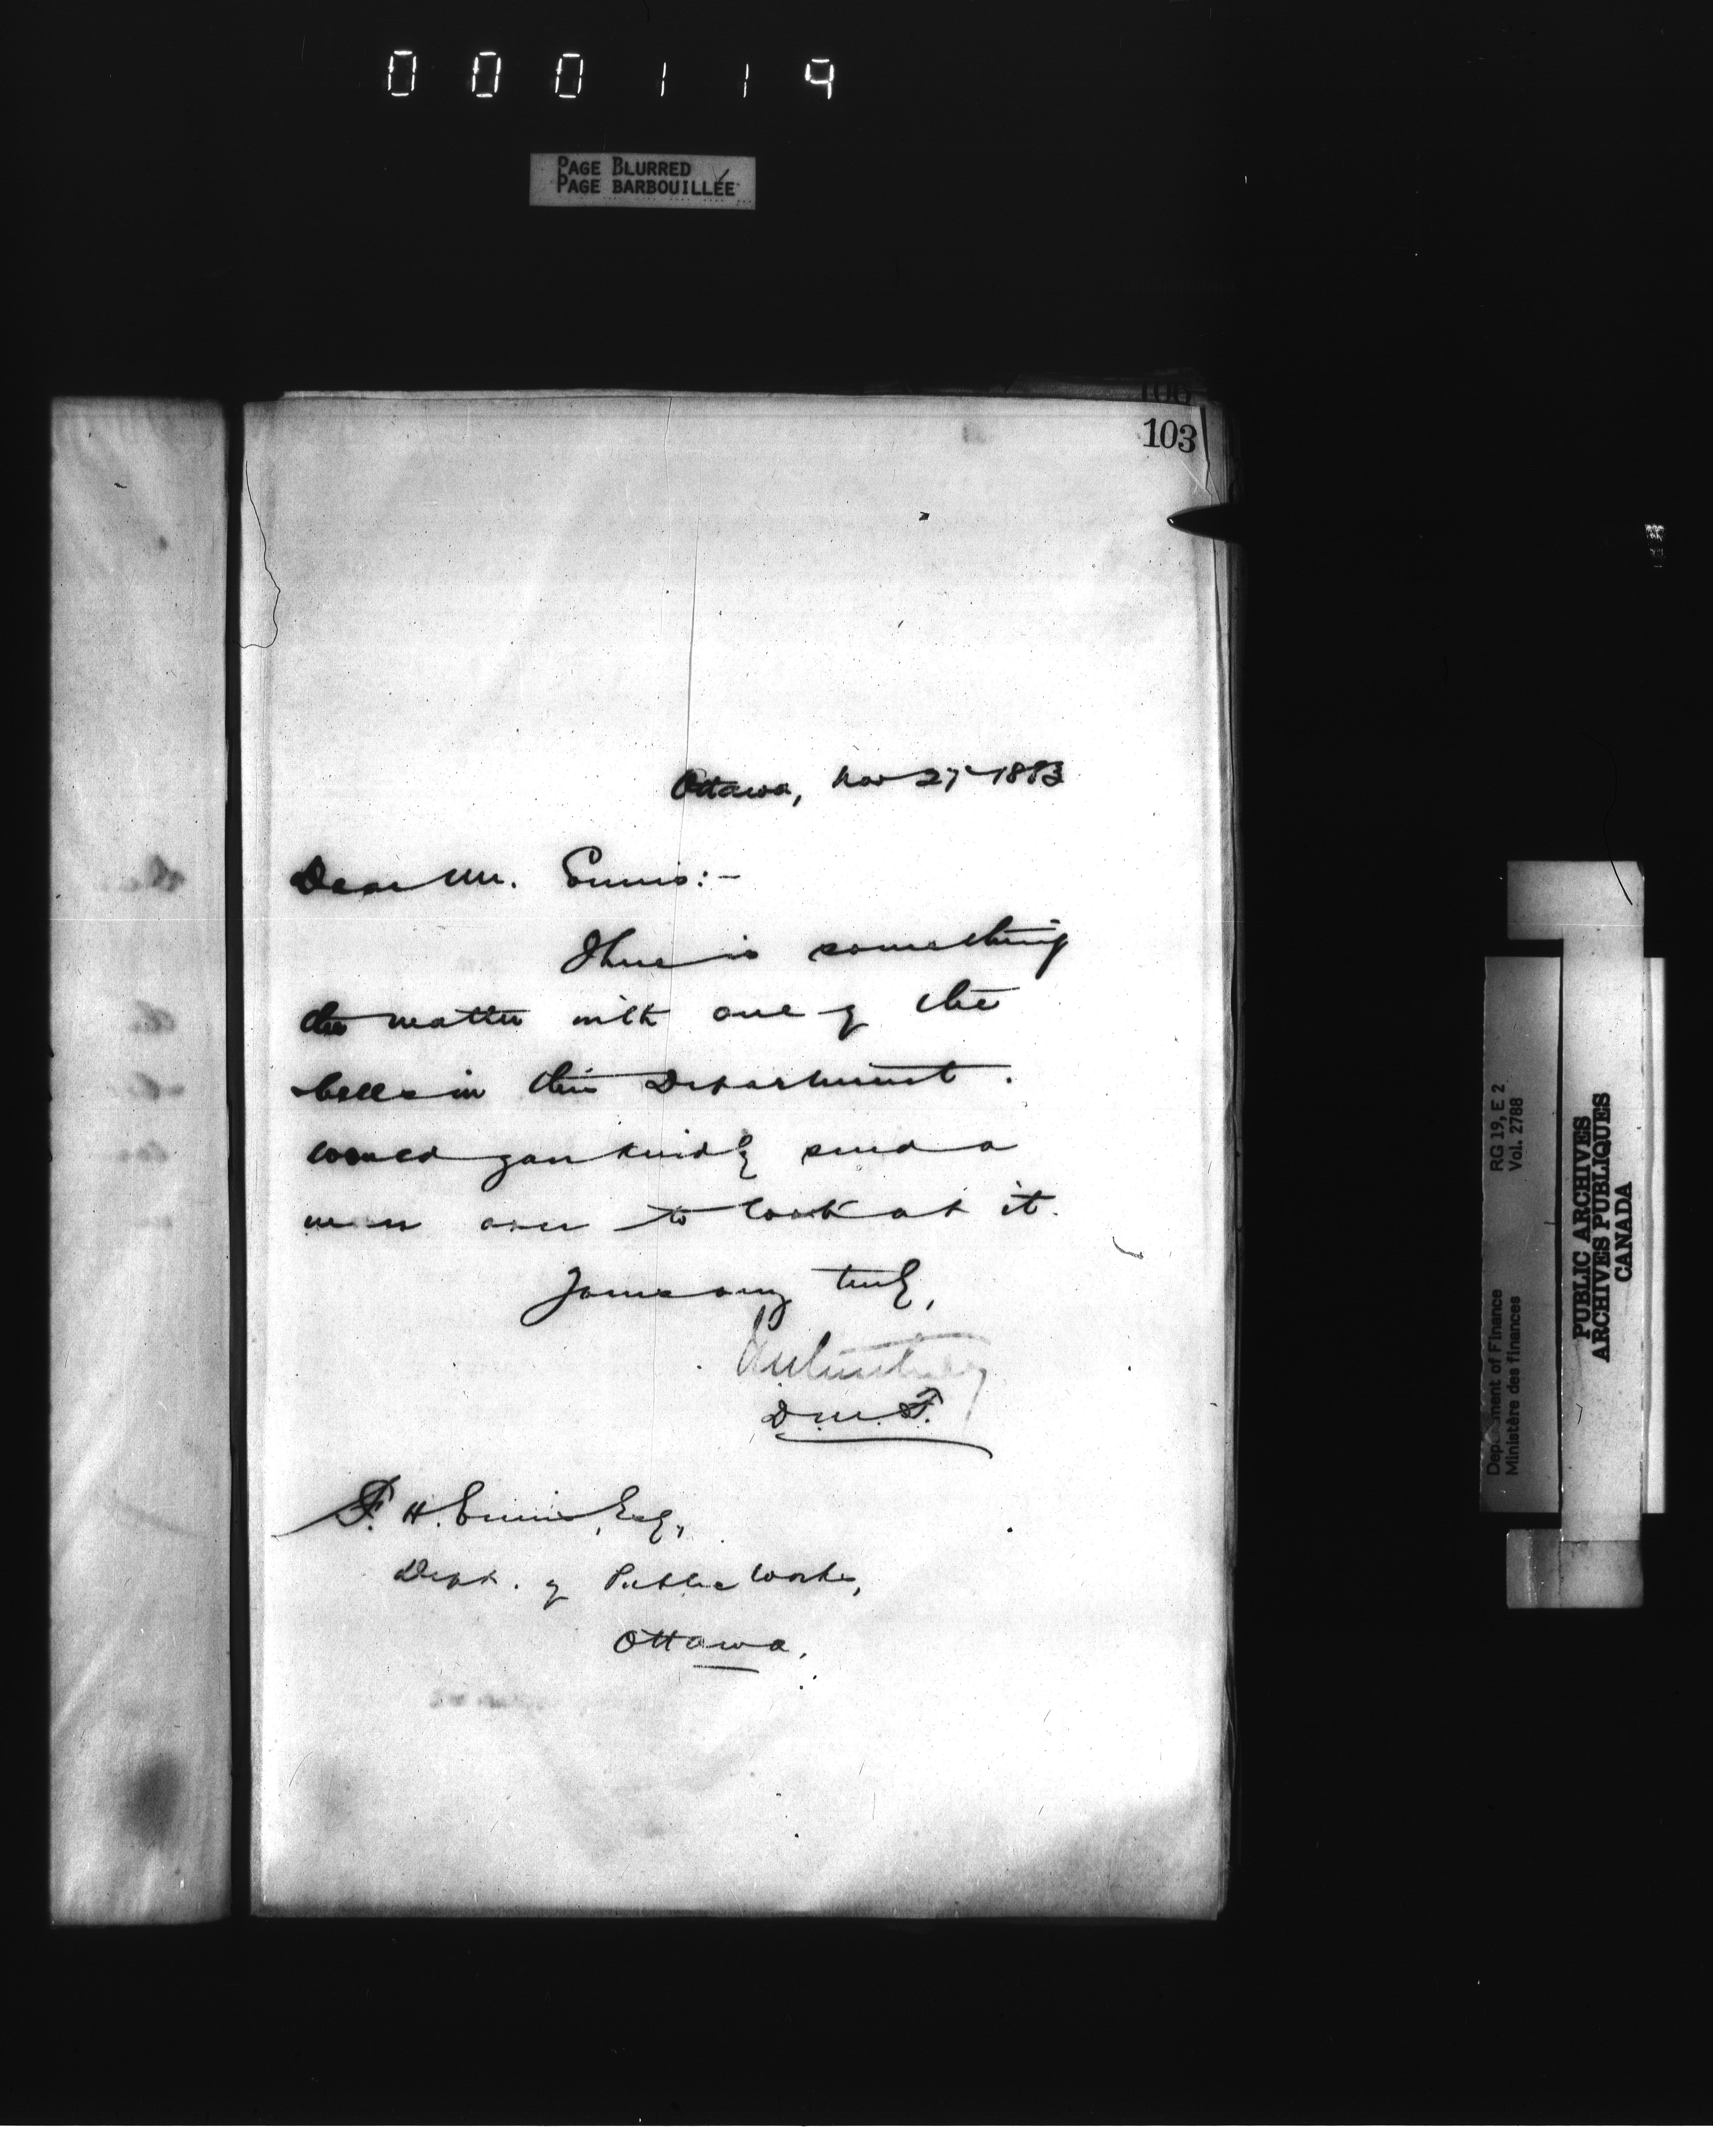 000119
PAGE BLURRED
PAGE BARBOUILLÉE
106
103
Ottawa, Nov 27 1883
Dear Mr. Ennis:-
There is something
the matter with one of the
bells in this Department.
Would you kindly send a
man over to look at it.
Yours very truly,
D.M.F.
F. H. Ennis, Esq,
Dept. of Public Works,
Ottawa,
RG 19, E 2
Vol. 2788
Department of Finance
Ministère des finances
PUBLIC ARCHIVES
ARCHIVES PUBLIQUES
CANADA